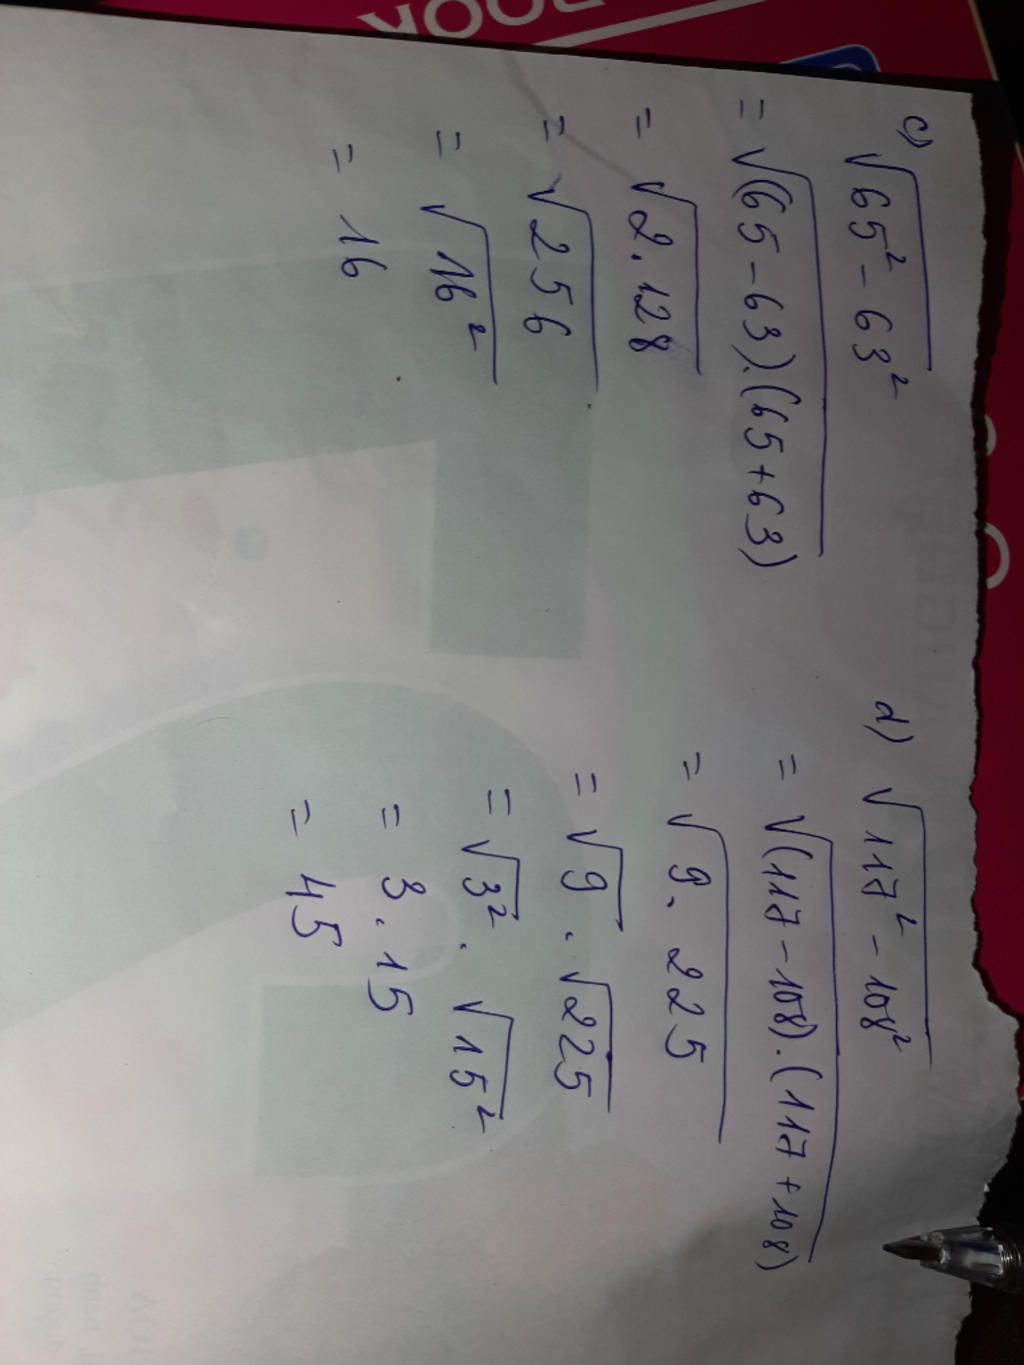 c) √65² - 63²
= √(65 - 63).(65 + 63)
= √2.128
= √256
= √16²
= 16
d) √117² - 108²
= √(117 - 108).(117 + 108)
= √9.225
= √9 . √225
= √3² . √15²
= 3.15
= 45